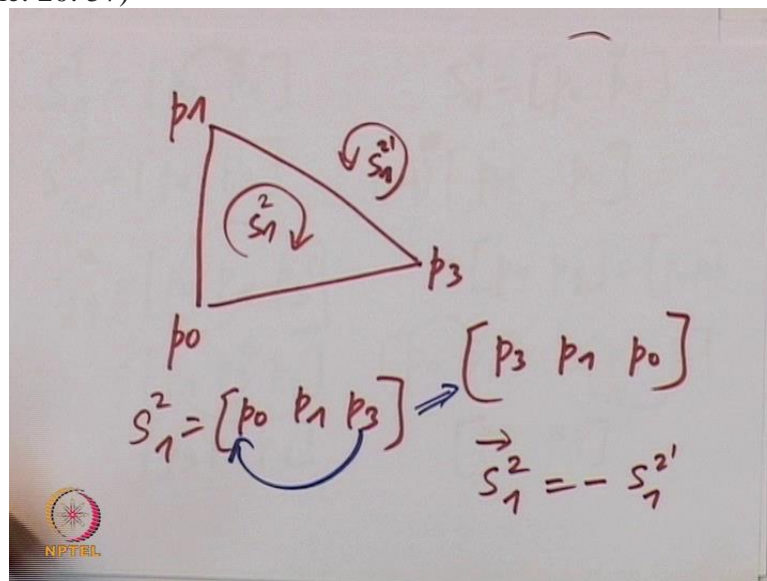 p1
S₁²'
S₁²
p3
p0
S₁² = [p0 p1 p3] ⇒ [p3 p1 p0]
→ S₁² = - S₁²'
NPTEL